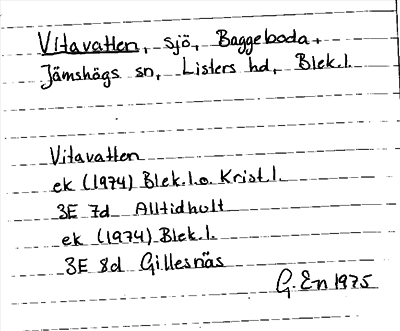 Vitavatten, sjö, Baggeboda,
Jämshögs sn, Listers hd, Blek.l.
Vitavatten
ek (1974) Blek.l.o. Krist.l.
3E 7d Alltidhult
ek (1974) Blek.l.
3E 8d Gillesnäs
G. En 1975